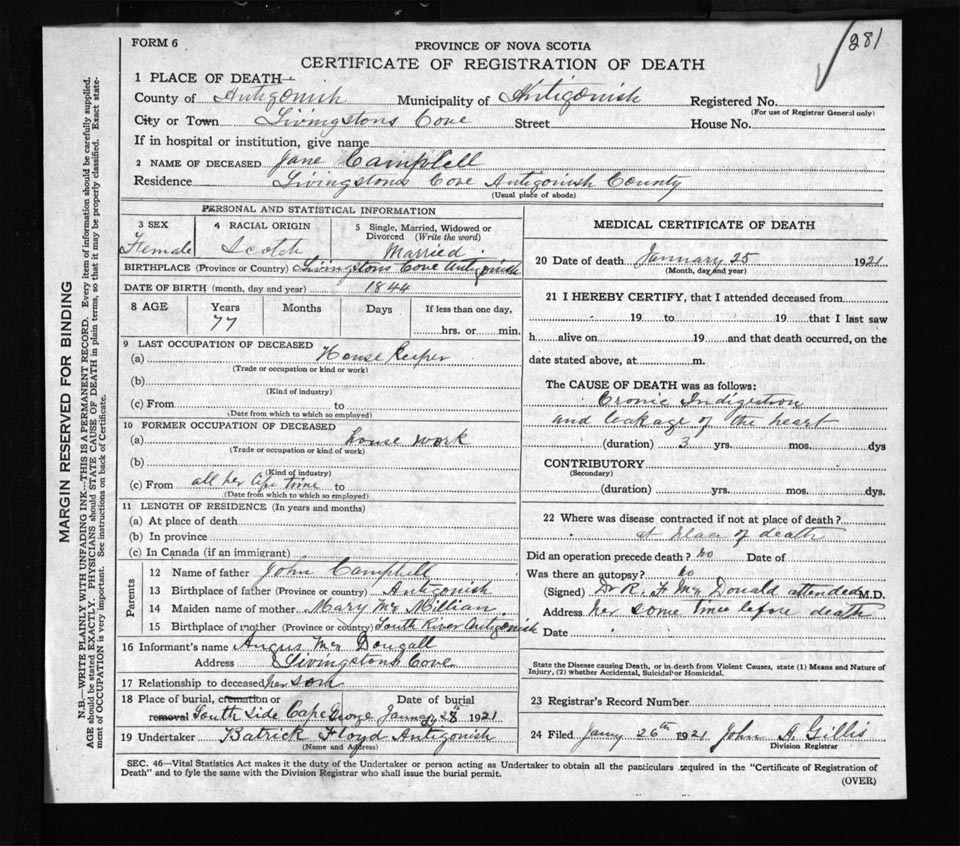 281
FORM 6
PROVINCE OF NOVA SCOTIA
CERTIFICATE OF REGISTRATION OF DEATH
1 PLACE OF DEATH
County of Antigonish Municipality of Antigonish Registered No.
(For use of Registrar General only)
City or Town Livingstons Cove Street House No.
If in hospital or institution, give name
2 NAME OF DECEASED Jane Campbell
Residence Livingstons Cove Antigonish County
(Usual place of abode)
PERSONAL AND STATISTICAL INFORMATION
3 SEX 4 RACIAL ORIGIN 5 Single, Married, Widowed or
Divorced (Write the word)
Female Scotch Married
BIRTHPLACE (Province or Country) Livingstons Cove Antigonish
DATE OF BIRTH (month, day and year) 1844
8 AGE Years Months Days If less than one day,
77 hrs. or min.
9 LAST OCCUPATION OF DECEASED
(a) House Keeper
(Trade or occupation or kind or work)
(b)
(Kind of industry)
(c) From to
(Date from which to which so employed)
10 FORMER OCCUPATION OF DECEASED
(a) house work
(Trade or occupation or kind of work)
(b)
(Kind of industry)
(c) From all her life time to
(Date from which to which so employed)
11 LENGTH OF RESIDENCE (In years and months)
(a) At place of death
(b) In province
(c) In Canada (if an immigrant)
Parents
12 Name of father John Campbell
13 Birthplace of father (Province or country) Antigonish
14 Maiden name of mother Mary Mc Millian
15 Birthplace of mother (Province or country) South River Antigonish
16 Informant's name Angus Mc Dougall
Address Livingstons Cove
17 Relationship to deceased her son
18 Place of burial, cremation or Date of burial
removal South Side Cape George January 28th 1921
19 Undertaker Patrick Floyd Antigonish
(Name and Address)
MEDICAL CERTIFICATE OF DEATH
20 Date of death January 25 1921
(Month, day and year)
21 I HEREBY CERTIFY, that I attended deceased from
19 to 19 that I last saw
h alive on 19 and that death occurred, on the
date stated above, at m.
The CAUSE OF DEATH was as follows:
Cronic Indigestion
and leakage of the heart
(duration) 3 yrs. mos. dys
CONTRIBUTORY
(Secondary)
(duration) yrs. mos. dys.
22 Where was disease contracted if not at place of death?
at place of death
Did an operation precede death? no Date of
Was there an autopsy? no
(Signed) Dr R. F. Mc Donald attended M.D.
Address her some time before death
Date
State the Disease causing Death, or in death from Violent Causes, state (1) Means and Nature of
Injury, (2) whether Accidental, Suicidal or Homicidal.
23 Registrar's Record Number
24 Filed Janry 26th 1921 John A Gillis
Division Registrar
SEC. 46—Vital Statistics Act makes it the duty of the Undertaker or person acting as Undertaker to obtain all the particulars required in the "Certificate of Registration of
Death" and to fyle the same with the Division Registrar who shall issue the burial permit.
(OVER)
MARGIN RESERVED FOR BINDING
N.B.—WRITE PLAINLY WITH UNFADING INK—THIS IS A PERMANENT RECORD. Every item of information should be carefully supplied.
AGE should be stated EXACTLY. PHYSICIANS should STATE CAUSE OF DEATH in plain terms, so that it may be properly classified. Exact state-
ment of OCCUPATION is very important. See instructions on back of Certificate.